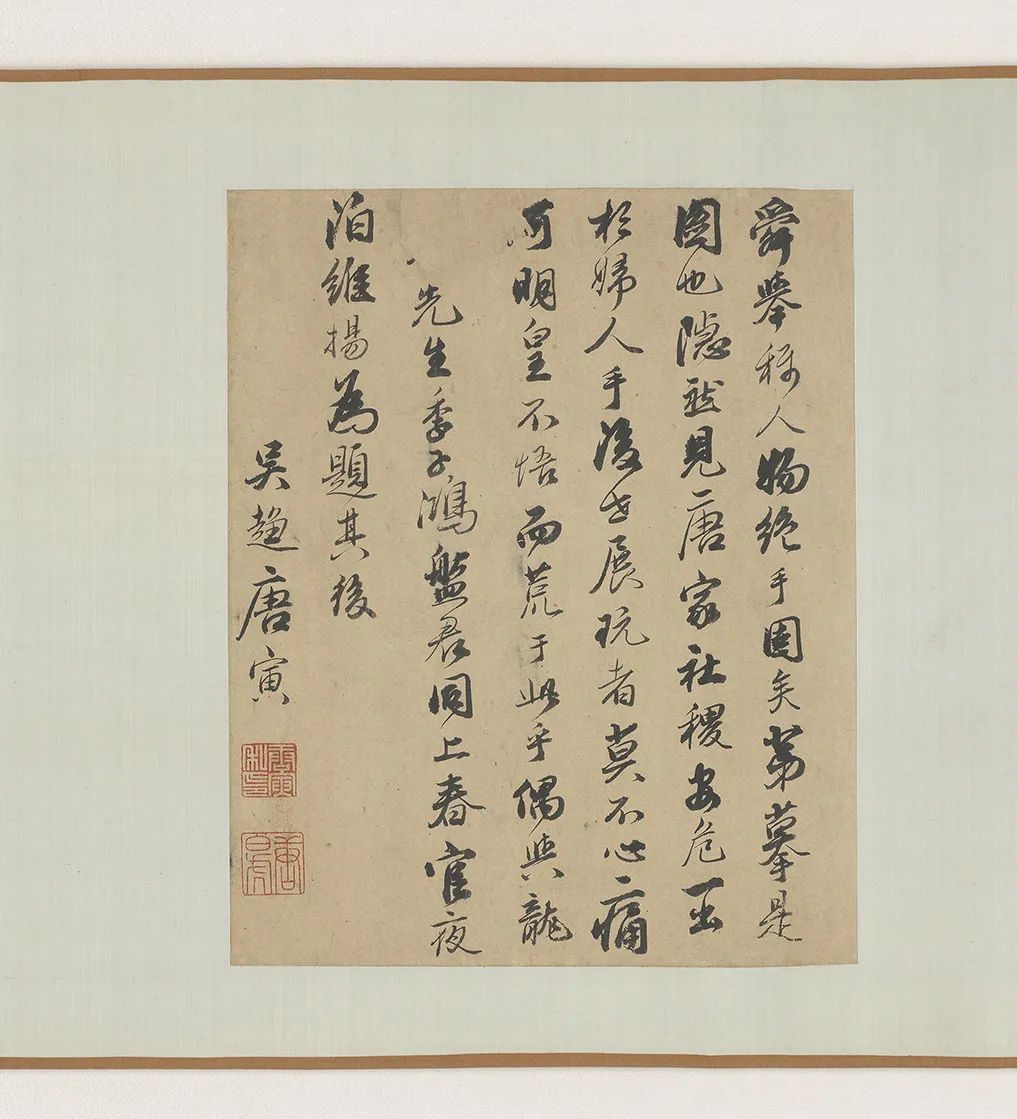 舜舉稱人物絕手固矣第摹是
圖也隱然見唐家社稷安危出
於婦人手後世展玩者莫不心痛
何明皇不悟而荒于此乎偶與龍
先生季子鴻盤君同上春官夜
泊維揚為題其後
吳趨唐寅
唐寅私印
唐白虎